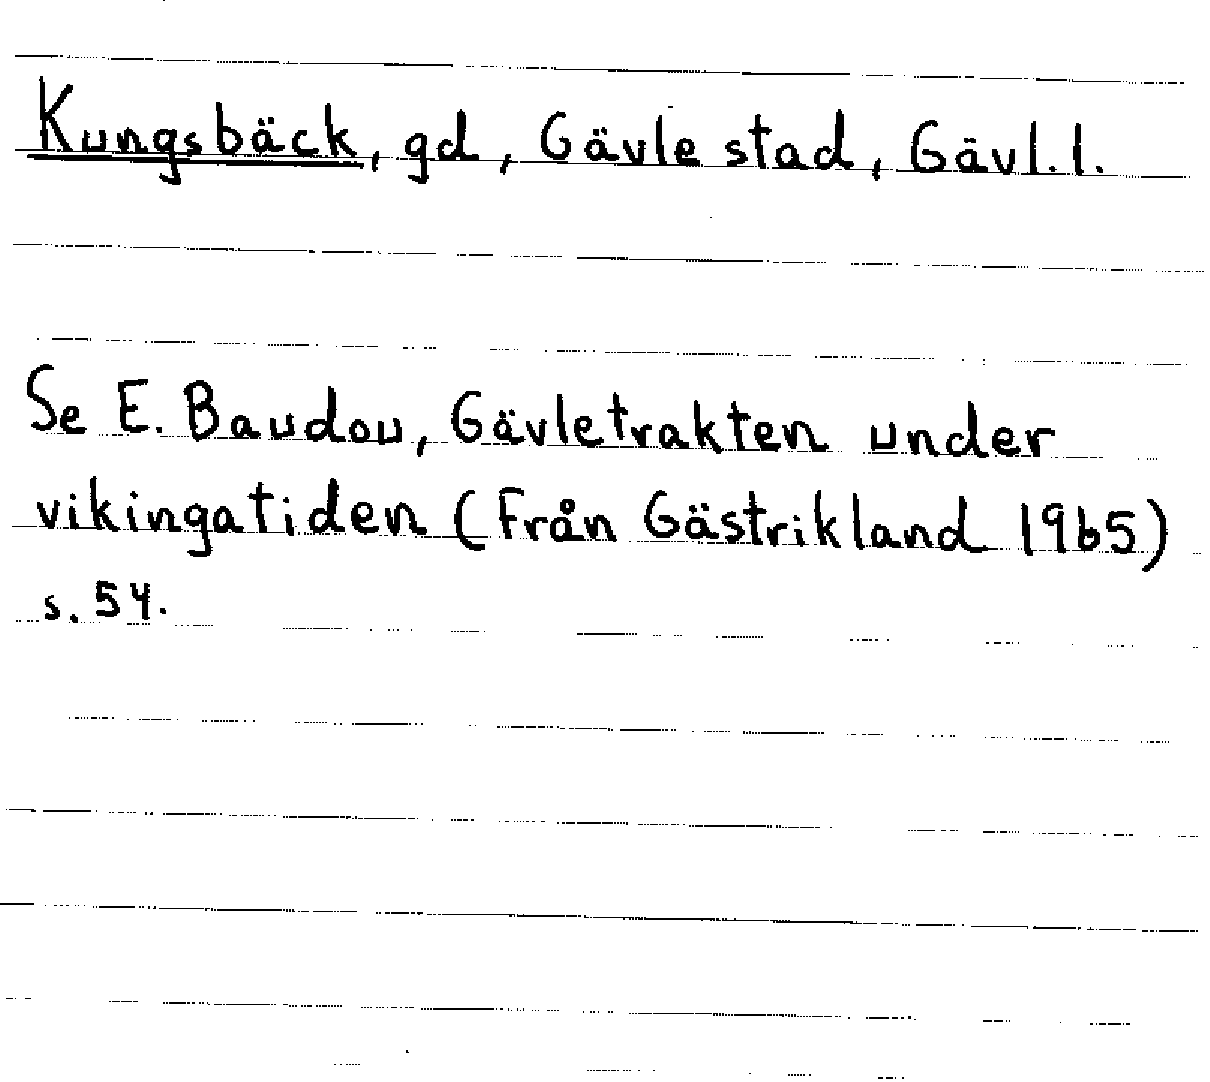 Kungsbäck, gd, Gävle stad, Gävl.l.
Se E. Baudou, Gävletrakten under
vikingatiden (Från Gästrikland 1965)
s. 54.